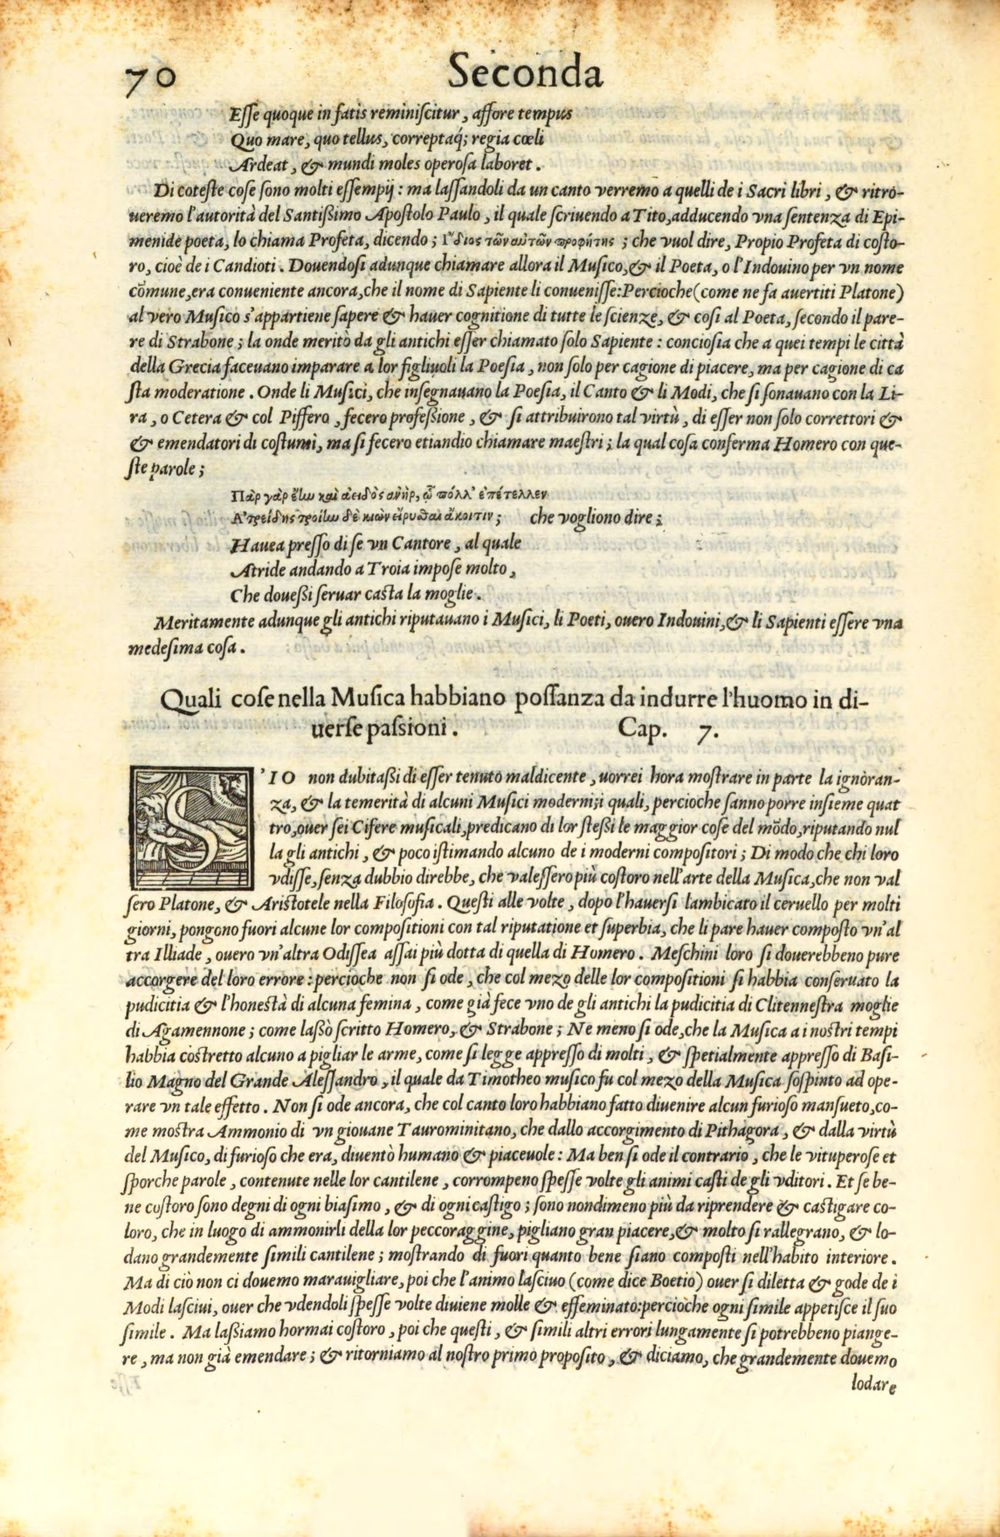 70 Seconda
Esse quoque in fatis reminiscitur, affore tempus
Quo mare, quo tellus, correptaq́; regia cœli
Ardeat, & mundi moles operosa laboret.
Di coteste cose sono molti essempij: ma lassandoli da un canto verremo a quelli de i Sacri libri, & ritro-
veremo l'autorità del Santißimo Apostolo Paulo, il quale scriuendo a Tito, adducendo vna sentenza di Epi-
menide poeta, lo chiama Profeta, dicendo; Ἴδιος τῶν αὐτῶν προφήτης; che vuol dire, Propio Profeta di costo-
ro, cioè de i Candioti. Douendosi adunque chiamare allora il Musico, & il Poeta, o l'Indouino per vn nome
cōmune, era conueniente ancora, che il nome di Sapiente li conuenisse: Percioche (come ne fa auertiti Platone)
al vero Musico s'appartiene sapere & hauer cognitione di tutte le scienze, & cosi al Poeta, secondo il pare-
re di Strabone; la onde meritò da gli antichi esser chiamato solo Sapiente: conciosia che a quei tempi le città
della Grecia faceuano imparare a lor figliuoli la Poesia, non solo per cagione di piacere, ma per cagione di ca
sta moderatione. Onde li Musici, che insegnauano la Poesia, il Canto & li Modi, che si sonauano con la Li-
ra, o Cetera & col Piffero, fecero profeßione, & si attribuirono tal virtù, di esser non solo correttori &
& emendatori di costumi, ma si fecero etiandio chiamare maestri; la qual cosa conferma Homero con que-
ste parole;
Πὰρ γὰρ ἔἰω καὶ ἀειδὸς ἀνὴρ, ᾧ πόλλ' ἐπέτελλεν
Ἀτρείδης τροίἰω δὲ κιὼν εἴρυσθαι ἄκοιτιν; che vogliono dire;
Hauea presso di se vn Cantore, al quale
Atride andando a Troia impose molto,
Che doueßi seruar casta la moglie.
Meritamente adunque gli antichi riputauano i Musici, li Poeti, ouero Indouini, & li Sapienti essere vna
medesima cosa.
Quali cose nella Musica habbiano possanza da indurre l'huomo in di-
uerse passioni. Cap. 7.
S'IO non dubitaßi di esser tenuto maldicente, uorrei hora mostrare in parte la ignoran-
za, & la temerità di alcuni Musici moderni; i quali, percioche sanno porre insieme quat
tro, ouer sei Cifere musicali, predicano di lor steßi le maggior cose del mōdo, riputando nul
la gli antichi, & poco istimando alcuno de i moderni compositori; Di modo che chi loro
vdisse, senza dubbio direbbe, che valessero più costoro nell'arte della Musica, che non val
sero Platone, & Aristotele nella Filosofia. Questi alle volte, dopo l'hauersi lambicato il ceruello per molti
giorni, pongono fuori alcune lor compositioni con tal riputatione et superbia, che li pare hauer composto vn'al
tra Illiade, ouero vn'altra Odissea assai più dotta di quella di Homero. Meschini loro si douerebbeno pure
accorgere del loro errore: percioche non si ode, che col mezo delle lor compositioni si habbia conseruato la
pudicitia & l'honestà di alcuna femina, come già fece vno de gli antichi la pudicitia di Clitennestra moglie
di Agamennone; come laßò scritto Homero, & Strabone; Ne meno si ode, che la Musica a i nostri tempi
habbia costretto alcuno a pigliar le arme, come si legge appresso di molti, & spetialmente appresso di Basi-
lio Magno del Grande Alessandro, il quale da Timotheo musico fu col mezo della Musica sospinto ad ope-
rare vn tale effetto. Non si ode ancora, che col canto loro habbiano fatto diuenire alcun furioso mansueto, co-
me mostra Ammonio di vn giouane Taurominitano, che dallo accorgimento di Pithagora, & dalla virtù
del Musico, di furioso che era, diuentò humano & piaceuole: Ma ben si ode il contrario, che le vituperose et
sporche parole, contenute nelle lor cantilene, corrompeno spesse volte gli animi casti de gli vditori. Et se be-
ne costoro sono degni di ogni biasimo, & di ogni castigo; sono nondimeno più da riprendere & castigare co-
loro, che in luogo di ammonirli della lor peccoraggine, pigliano gran piacere, & molto si rallegrano, & lo-
dano grandemente simili cantilene; mostrando di fuori quanto bene siano composti nell'habito interiore.
Ma di ciò non ci douemo marauigliare, poi che l'animo lasciuo (come dice Boetio) ouer si diletta & gode de i
Modi lasciui, ouer che vdendoli spesse volte diuiene molle & effeminato: percioche ogni simile appetisce il suo
simile. Ma laßiamo hormai costoro, poi che questi, & simili altri errori lungamente si potrebbeno piange-
re, ma non già emendare; & ritorniamo al nostro primo proposito, & diciamo, che grandemente douemo
lodare